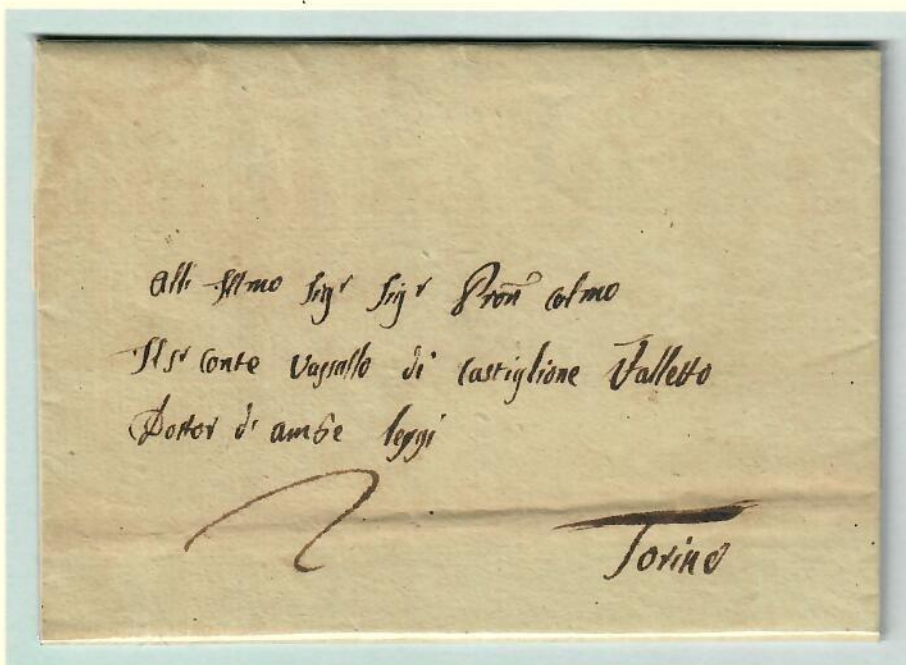 All. Illmo Sigr Sigr Pron Colmo
Il Sr Conte Vassallo di Castiglione Falletto
Dottor di ambe leggi
Torino